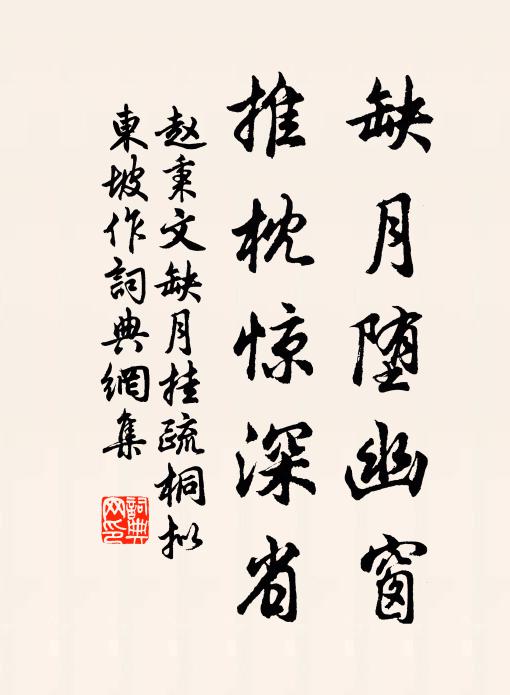 缺月堕幽窗
推枕惊深省
赵秉文缺月挂疏桐拟
東坡作詞典網集
詞典网印